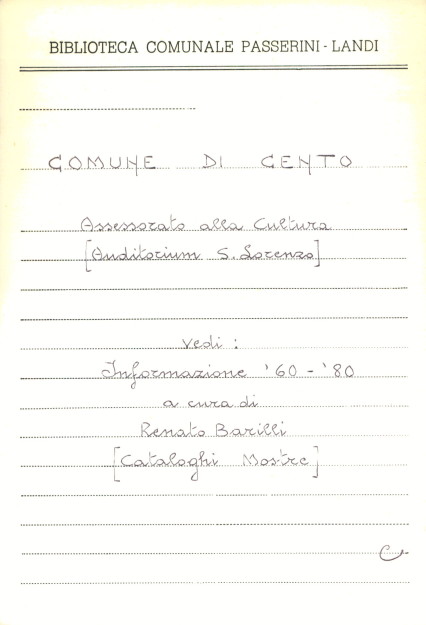 BIBLIOTECA COMUNALE PASSERINI - LANDI
COMUNE DI CENTO
Assessorato alla Cultura
[Auditorium S. Lorenzo]
Vedi :
Informazione '60 - '80
a cura di
Renato Barilli
[Cataloghi Mostre]
C